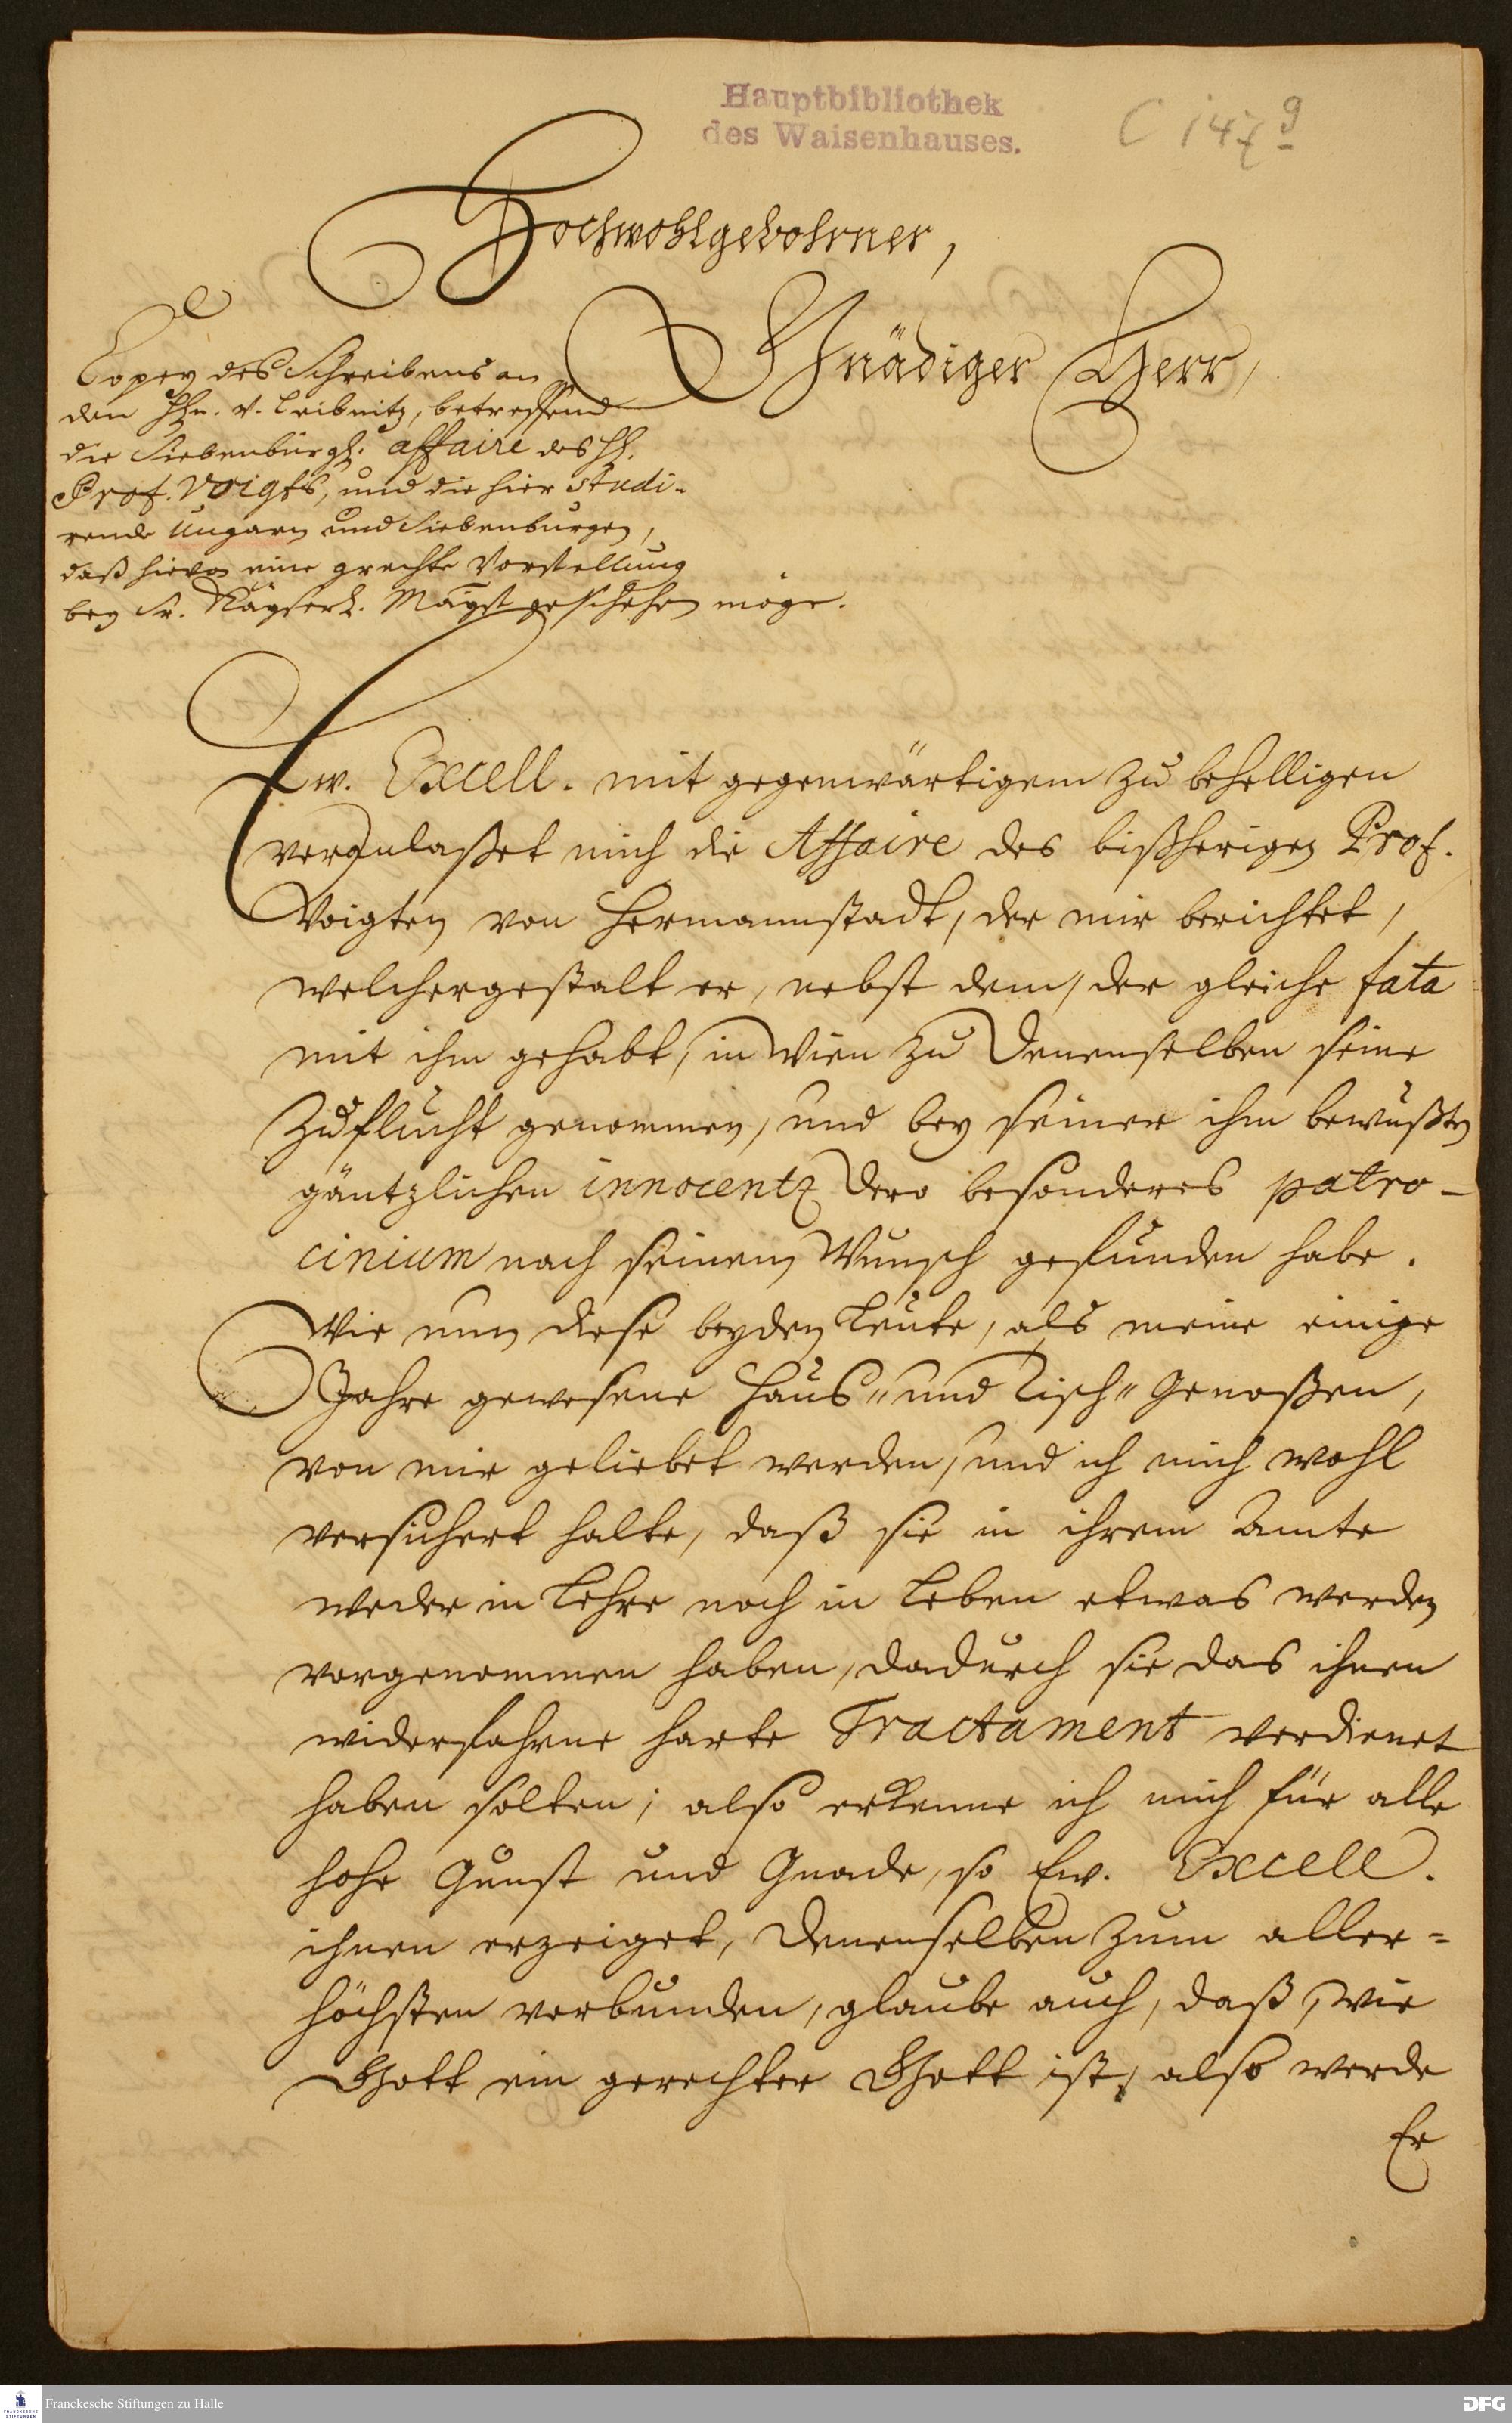 Hauptbibliothek
des Waisenhauses.
C 147 g
Hochwohlgebohrner,
Gnädiger Herr,
Copey des Schreibens an
den Hhn. v. Leibnitz, betreffend
die Siebenbürgh. affaire des Hh.
Prof. Voigts, und die hier studi-
rende Ungarn und Siebenburgen,
daß hievon eine grechte Vorstellung
bey Sr. Käyserl. Mayst geschehen möge.
Ew. Excell. mit gegenwärtigem zu behelligen
veranlaßet mich die Affaire des bißherigen Prof.
Voigten von Hermannstadt, der mir berichtet,
welchergestalt er, nebst dem, der gleiche fata
mit ihm gehabt, in Wien zu Denenselben seine
Zuflucht genommen, und bey seiner ihm bewußten
gäntzlichen innocentz Dero besonderes patro-
cinium nach seinem Wunsch gefunden habe.
Wie nun diese beyden Leute, als meine einige
Jahre gewesene Haus- und Tisch-Genoßen,
von mir geliebet werden, und ich mich wohl
versichert halte, daß sie in ihrem Amte
weder in Lehre noch in Leben etwas werden
vorgenommen haben, dadurch sie das ihnen
widerfahrne harte Tractament verdienet
haben solten; also erkenne ich mich für alle
hohe Gunst und Gnade, so Ew. Excell.
ihnen erzeiget, Denenselben zum aller-
höchsten verbunden, glaube auch, daß, wie
Gott ein gerechter Gott ist, also werde
Er
Franckesche Stiftungen zu Halle
DFG